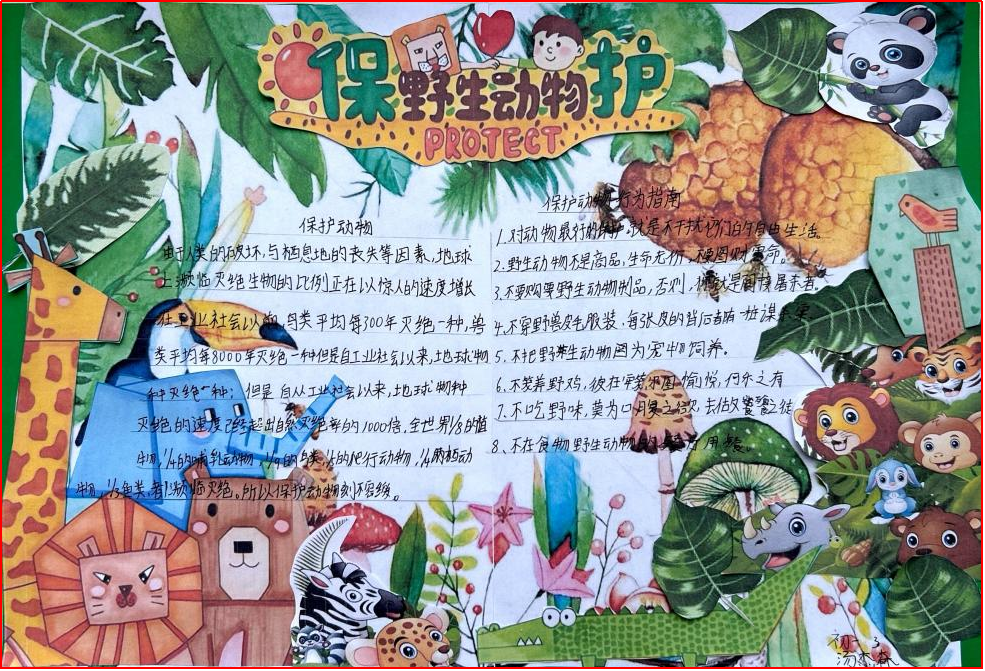 保护野生动物
PROTECT
保护动物
由于人类的破坏,与栖息地的丧失等因素,地球
上濒临灭绝生物的比例正在以惊人的速度增长
在工业社会以前,鸟类平均每300年灭绝一种,兽
类平均每8000年灭绝一种但是自工业社会以来,地球物
种灭绝一种;但是自从工业社会以来,地球物种
灭绝的速度已经超出自然灭绝率的1000倍,全世界1/8的植
物,1/4的哺乳动物,1/9的鸟类,1/5的爬行动物,1/4两栖动
物,1/3鱼类,都濒临灭绝。所以保护动物刻不容缓。
保护动物行为指南
1.对动物最好的保护,就是不干扰它们的自由生活。
2.野生动物不是商品,生命无价,不要图财害命。
3.不要购买野生动物制品,否则,你就是间接屠杀者。
4.不穿野兽皮毛服装,每张皮的背后都有一桩谋杀案。
5.不把野生动物因为宠物饲养。
6.不笼养野鸡,彼在牢笼不图愉悦,何乐之有
7.不吃野味,莫为口腹之欲,去做饕餮之徒
8.不在食物野生动物的
初一3
汤